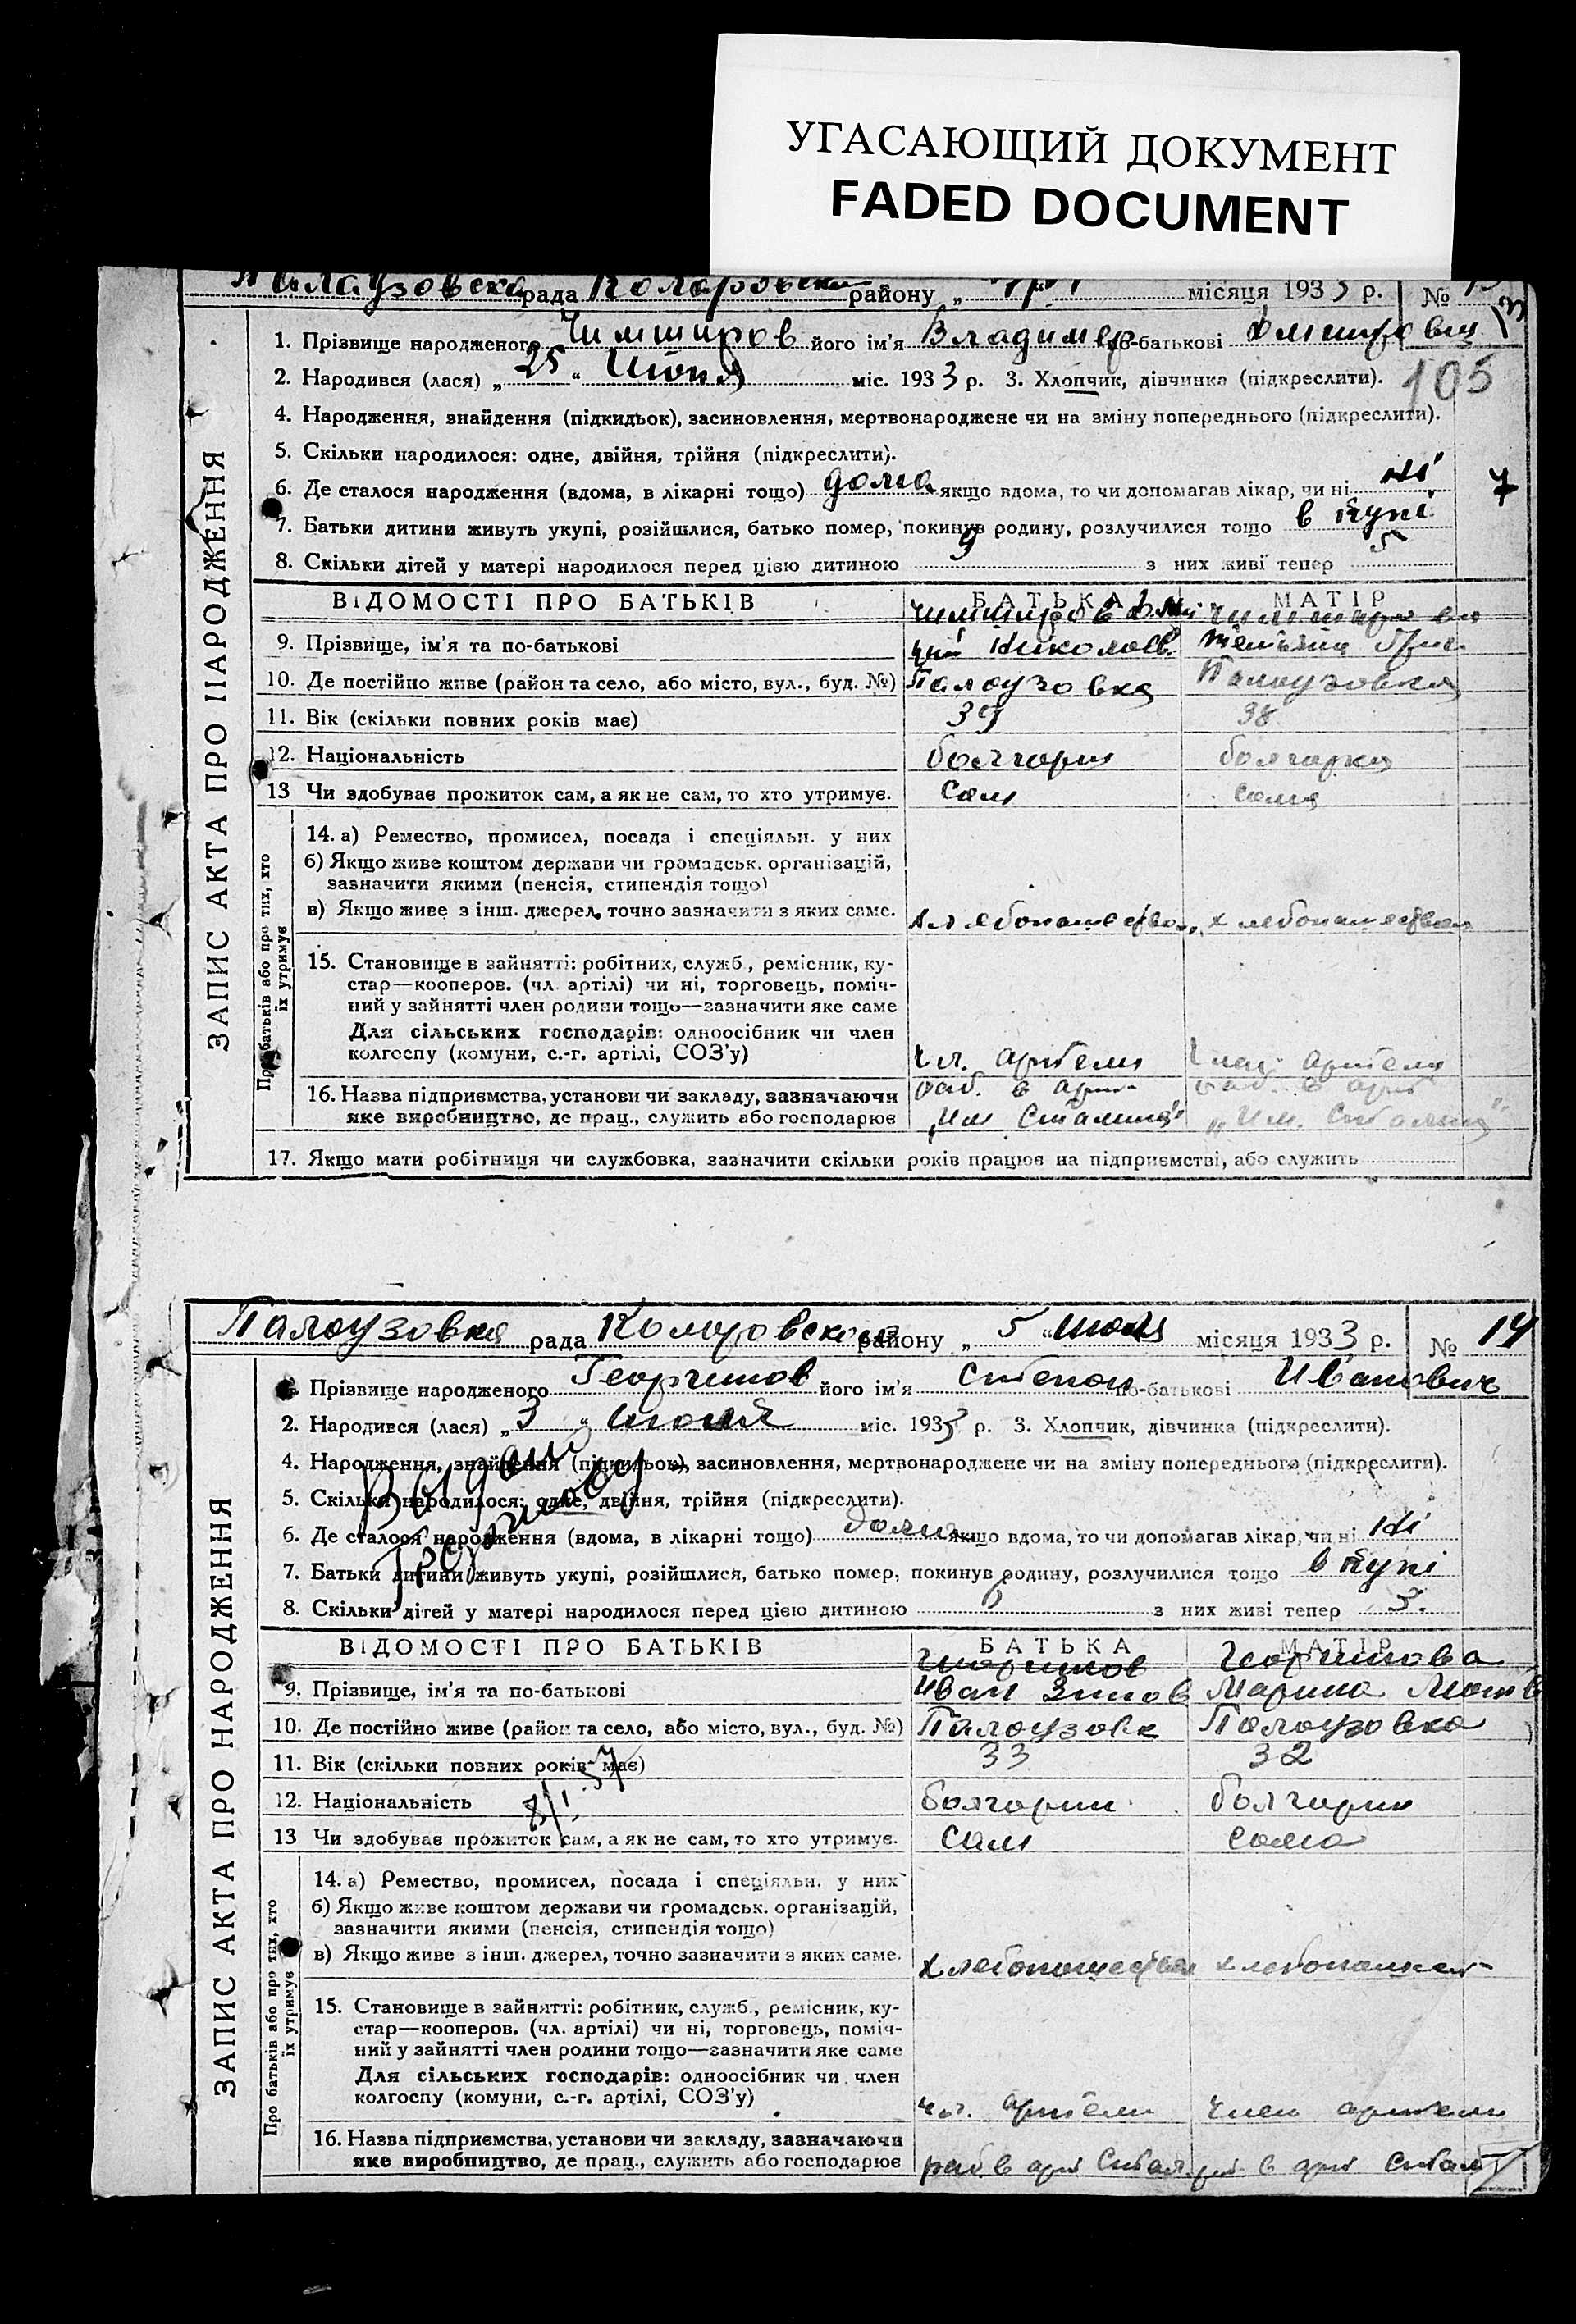 УГАСАЮЩИЙ ДОКУМЕНТ
FADED DOCUMENT
рада району „ місяця 1933 р. №
1. Прізвище народженого Чимширов його ім'я Владимер по-батькові
105
2. Народився (лася) „ 25 “ Июня міс. 1933 р. 3. Хлопчик, дівчинка (підкреслити).
4. Народження, знайдення (підкидьок), засиновлення, мертвонароджене чи на зміну попереднього (підкреслити).
5. Скільки народилося: одне, двійня, трійня (підкреслити).
6. Де сталося народження (вдома, в лікарні тощо) дома якщо вдома, то чи допомагав лікар, чи ні ні
7
7. Батьки дитини живуть укупі, розійшлися, батько помер, покинув родину, розлучилися тощо в купі
8. Скільки дітей у матері народилося перед цією дитиною 9 з них живі тепер 5
ЗАПИС АКТА ПРО НАРОДЖЕННЯ
ВІДОМОСТІ ПРО БАТЬКІВ БАТЬКА МАТІР
9. Прізвище, ім'я та по-батькові
10. Де постійно живе (район та село, або місто, вул., буд. №) Палаузовка Палаузовка
11. Вік (скільки повних років має) 39 38
12. Національність болгарин болгарка
13 Чи здобуває прожиток сам, а як не сам, то хто утримує. Сам сама
Про батьків або про тих, хто їх утримує
14. а) Ремество, промисел, посада і спеціяльн. у них
б) Якщо живе коштом держави чи громадськ. організацій,
зазначити якими (пенсія, стипендія тощо)
в) Якщо живе з інш. джерел, точно зазначити з яких саме.
15. Становище в зайнятті: робітник, служб., ремісник, ку-
стар—кооперов. (чл. артілі) чи ні, торговець, поміч-
ний у зайнятті член родини тощо—зазначити яке саме
Для сільських господарів: одноосібник чи член
колгоспу (комуни, с.-г. артілі, СОЗ'у) чл. артели член артели
16. Назва підприємства, установи чи закладу, зазначаючи раб. в арт раб. в арт
яке виробництво, де прац., служить або господарює „Им Сталина“ „Им. Сталина“
17. Якщо мати робітниця чи службовка, зазначити скільки років працює на підприємстві, або служить
Палаузовка рада Коларовского району „ 5 “ июля місяця 1933 р. № 14
Прізвище народженого Георгинов його ім'я Степан по-батькові Иванович
2. Народився (лася) „ 3 “ міс. 1933 р. 3. Хлопчик, дівчинка (підкреслити).
4. Народження, знайдення (підкидьок), засиновлення, мертвонароджене чи на зміну попереднього (підкреслити).
5. Скільки народилося: одне, двійня, трійня (підкреслити).
6. Де сталося народження (вдома, в лікарні тощо) дома якщо вдома, то чи допомагав лікар, чи ні ні
7. Батьки дитини живуть укупі, розійшлися, батько помер, покинув родину, розлучилися тощо в купі
8. Скільки дітей у матері народилося перед цією дитиною 6 з них живі тепер 3.
ЗАПИС АКТА ПРО НАРОДЖЕННЯ
ВІДОМОСТІ ПРО БАТЬКІВ БАТЬКА МАТІР
Георгинов Георгинова
9. Прізвище, ім'я та по-батькові Иван Марина
10. Де постійно живе (район та село, або місто, вул., буд. №) Палаузовк Палаузовка
11. Вік (скільки повних років має) 33 32
12. Національність болгарин болгарин
13 Чи здобуває прожиток сам, а як не сам, то хто утримує. Сам сама
Про батьків або про тих, хто їх утримує
14. а) Ремество, промисел, посада і спеціяльн. у них
б) Якщо живе коштом держави чи громадськ. організацій,
зазначити якими (пенсія, стипендія тощо)
в) Якщо живе з інш. джерел, точно зазначити з яких саме.
15. Становище в зайнятті: робітник, служб., ремісник, ку-
стар—кооперов. (чл. артілі) чи ні, торговець, поміч-
ний у зайнятті член родини тощо—зазначити яке саме
Для сільських господарів: одноосібник чи член
колгоспу (комуни, с.-г. артілі, СОЗ'у) чл. артели член артели
16. Назва підприємства, установи чи закладу, зазначаючи
яке виробництво, де прац., служить або господарює раб. в арт Стал в арт Стал